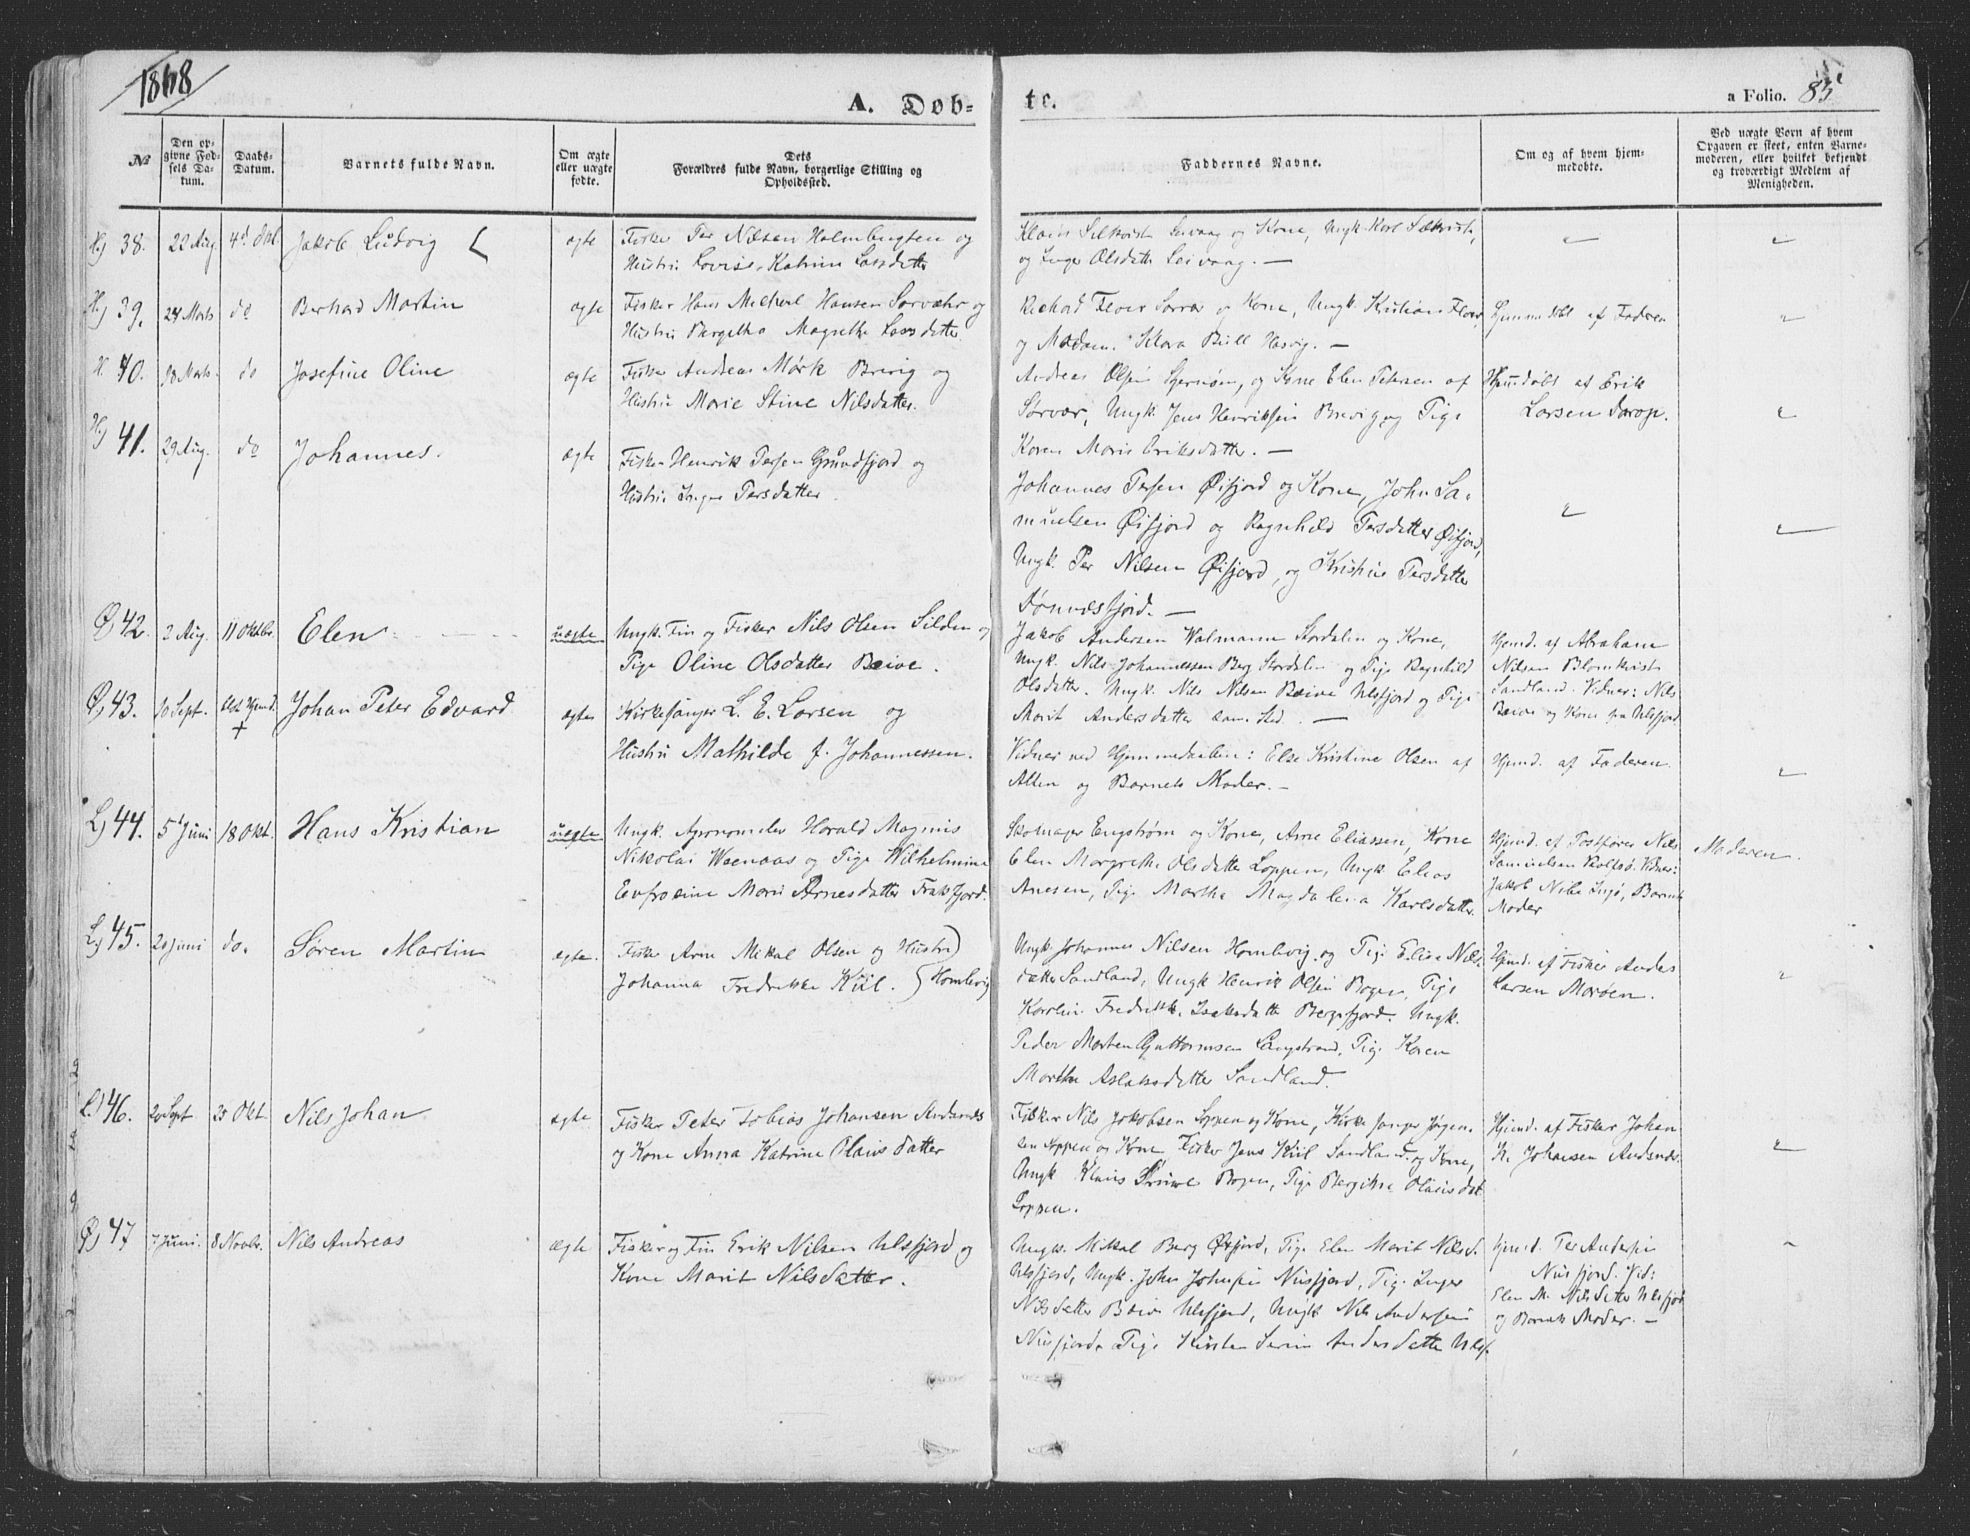 1868
A. Døb-
te.
a Folio. 85
№
Den op-
givne Fød-
sels Da-
tum.
Daabs-
Datum.
Barnets fulde Navn.
Om ægte
eller uægte
fødte.
Dets
Forældres fulde Navn, borgerlige Stilling og
Opholdssted.
Faddernes Navne.
Om og af hvem hjem-
medøbte.
Ved uægte Børn af hvem
Opgaven er skeet, enten Barne-
moderen, eller hvilket bekjendt
og troværdigt Medlem af
Menigheden.
H) 38. 22 Aug. 4d Okt. Jakob Ludvig ægte
Fisker Per Nilsen Holmbugten og
Hustru Lovise Katrine Larsdatter
Klaus Silkvist Leivaag og Kone, Ungk. Karl
og Inger Olsdatter Leivaag. —
H) 39. 24 Marts do Berhard Martin ægte
Fisker Hans Michael Hansen Sørvæhr og
Hustru Bergitha Magrethe Larsdatter
Richard Floer Sørvær og Kone, Ungk. Kristian Floer,
og Madam Klara Bull Hasvig. —
Hjemmedøbt af Faderen
H. 40. Marts do Josefine Oline ægte
Fisker Andreas Mørk Brevig og
Hustru Marie Stine Nilsdatter.
Andreas Olsen Stjernøen, og Kone Elen Petersen af
Sørvær, Ungk. Jens Henriksen Brevig og Pige
Karen Maria Eriksdatter. —
Hjemdøbt af Erik
Larsen
H) 41. 29 Aug. do Johannes. ægte
Fisker Henrik Persen Grundfjord og
Hustru Inger Persdatter.
Johannes Persen Øifjord og Kone, John Sa-
muelsen Øifjord og Ragnhild Persdatter Øifjord,
Ungk. Per Nilsen Øifjord, og Kristine Persdatter
Tønnesfjord. —
Ø) 42. 2 Aug. 11 Oktbr. Elen uægte
Ungk. Fin og Fisker Nils Olsen Silden og
Pige Oline Olsdatter Bæive.
Jakob Andersen Walmann Stordalen og Kone,
Ungk. Nils Johannessen Berg Stordalen og Pige Ragnhild
Olsdatter. Ungk. Nils Nilsen Bæive Ulsfjord og Pige
Marit Andersdatter sam. Sted. —
Hjemd. af Abraham
Nilsen Blomkvist
Sandland. Vidner: Nils
Bæive og Kone fra Ulsfjord
Ø) 43. 10 Sept. Hjemd. † Johan Peter Edvard ægte
Kirkesanger L. E. Larsen og
Hustru Mathilde f. Johannessen.
Vidner ved Hjemmedaaben: Else Kristine Olsen af
Alten og Barnets Moder. —
Hjemd. af Faderen.
L) 44. 5 Juni 18 Okt. Hans Kristian uægte
Ungk. Agronomelev Harald Magnus
Nikolai Weenaas og Pige Wilhelmine
Eufrosine Marie Arnesdatter Frakfjord.
Skomager Engstrøm og Kone, Arne Eliassen, Kone
Elen Margrethe Olsdatter Loppen, Ungk. Elias
Arnesen, Pige Martha Magdalena Karlsdatter
Hjemd. af Postfører Nils
Samuelsen Rolfsø. Vidner:
Jakob Nilsen Ingø, Barnets
Moder
Moderen.
L) 45. 20 Juni do. Søren Martin ægte.
Fisker Arne Mikal Olsen og Hustru
Johanna Fredrikke Kiil. Homlevig
Ungk. Johannes Nilsen Homlevig og Pige Elisa Nils-
datter Sandland, Ungk. Henrik Olsen Bogen, Pige
Karoline Fredrikke Isaksdatter Bergsfjord. Ungk.
Peder Morten Guttormsen Langstrand, Pige Karen
Marthe Aslaksdatter Sandland.
Hjemd. af Fisker Anders
Larsen Marøen.
L) 46. 20 Sept 25 Okt. Nils Johan ægte
Fisker Peter Tobias Johansen Andsnes
og Kone Anna Katrine Olausdatter
Fisker Nils Jakobsen Loppen og Kone, Kirkesanger Jørgen-
sen Loppen og Kone, Fisker Jens Kiil Sandland og Kone,
Ungk Klaus Bogen, Pige Bergitha Olausdat.
Loppen.
Hjemd. af Fisker Johan
H. Johansen Andsnes.
Ø) 47 7 Juni. 8 Novbr. Nils Andreas ægte
Fisker og Fin Erik Nilsen Ulsfjord og
Kone Marit Nilsdatter.
Ungk. Mikal Berg Øxfjord, Pige Elen Marit Nilsd.
Ulsfjord, Ungk. John Johnsen Nusfjord, Pige Inger
Nilsdatter Bæive Ulsfjord, Ungk Nils Andersen
Nusfjord, Pige Kirsten Serine Andersdatter Ulsf.
Hjemd. Per Andersen
Nusfjord. Vid:
Elen M. Nilsdatter Ulsfjord
og Barnets Moder. —